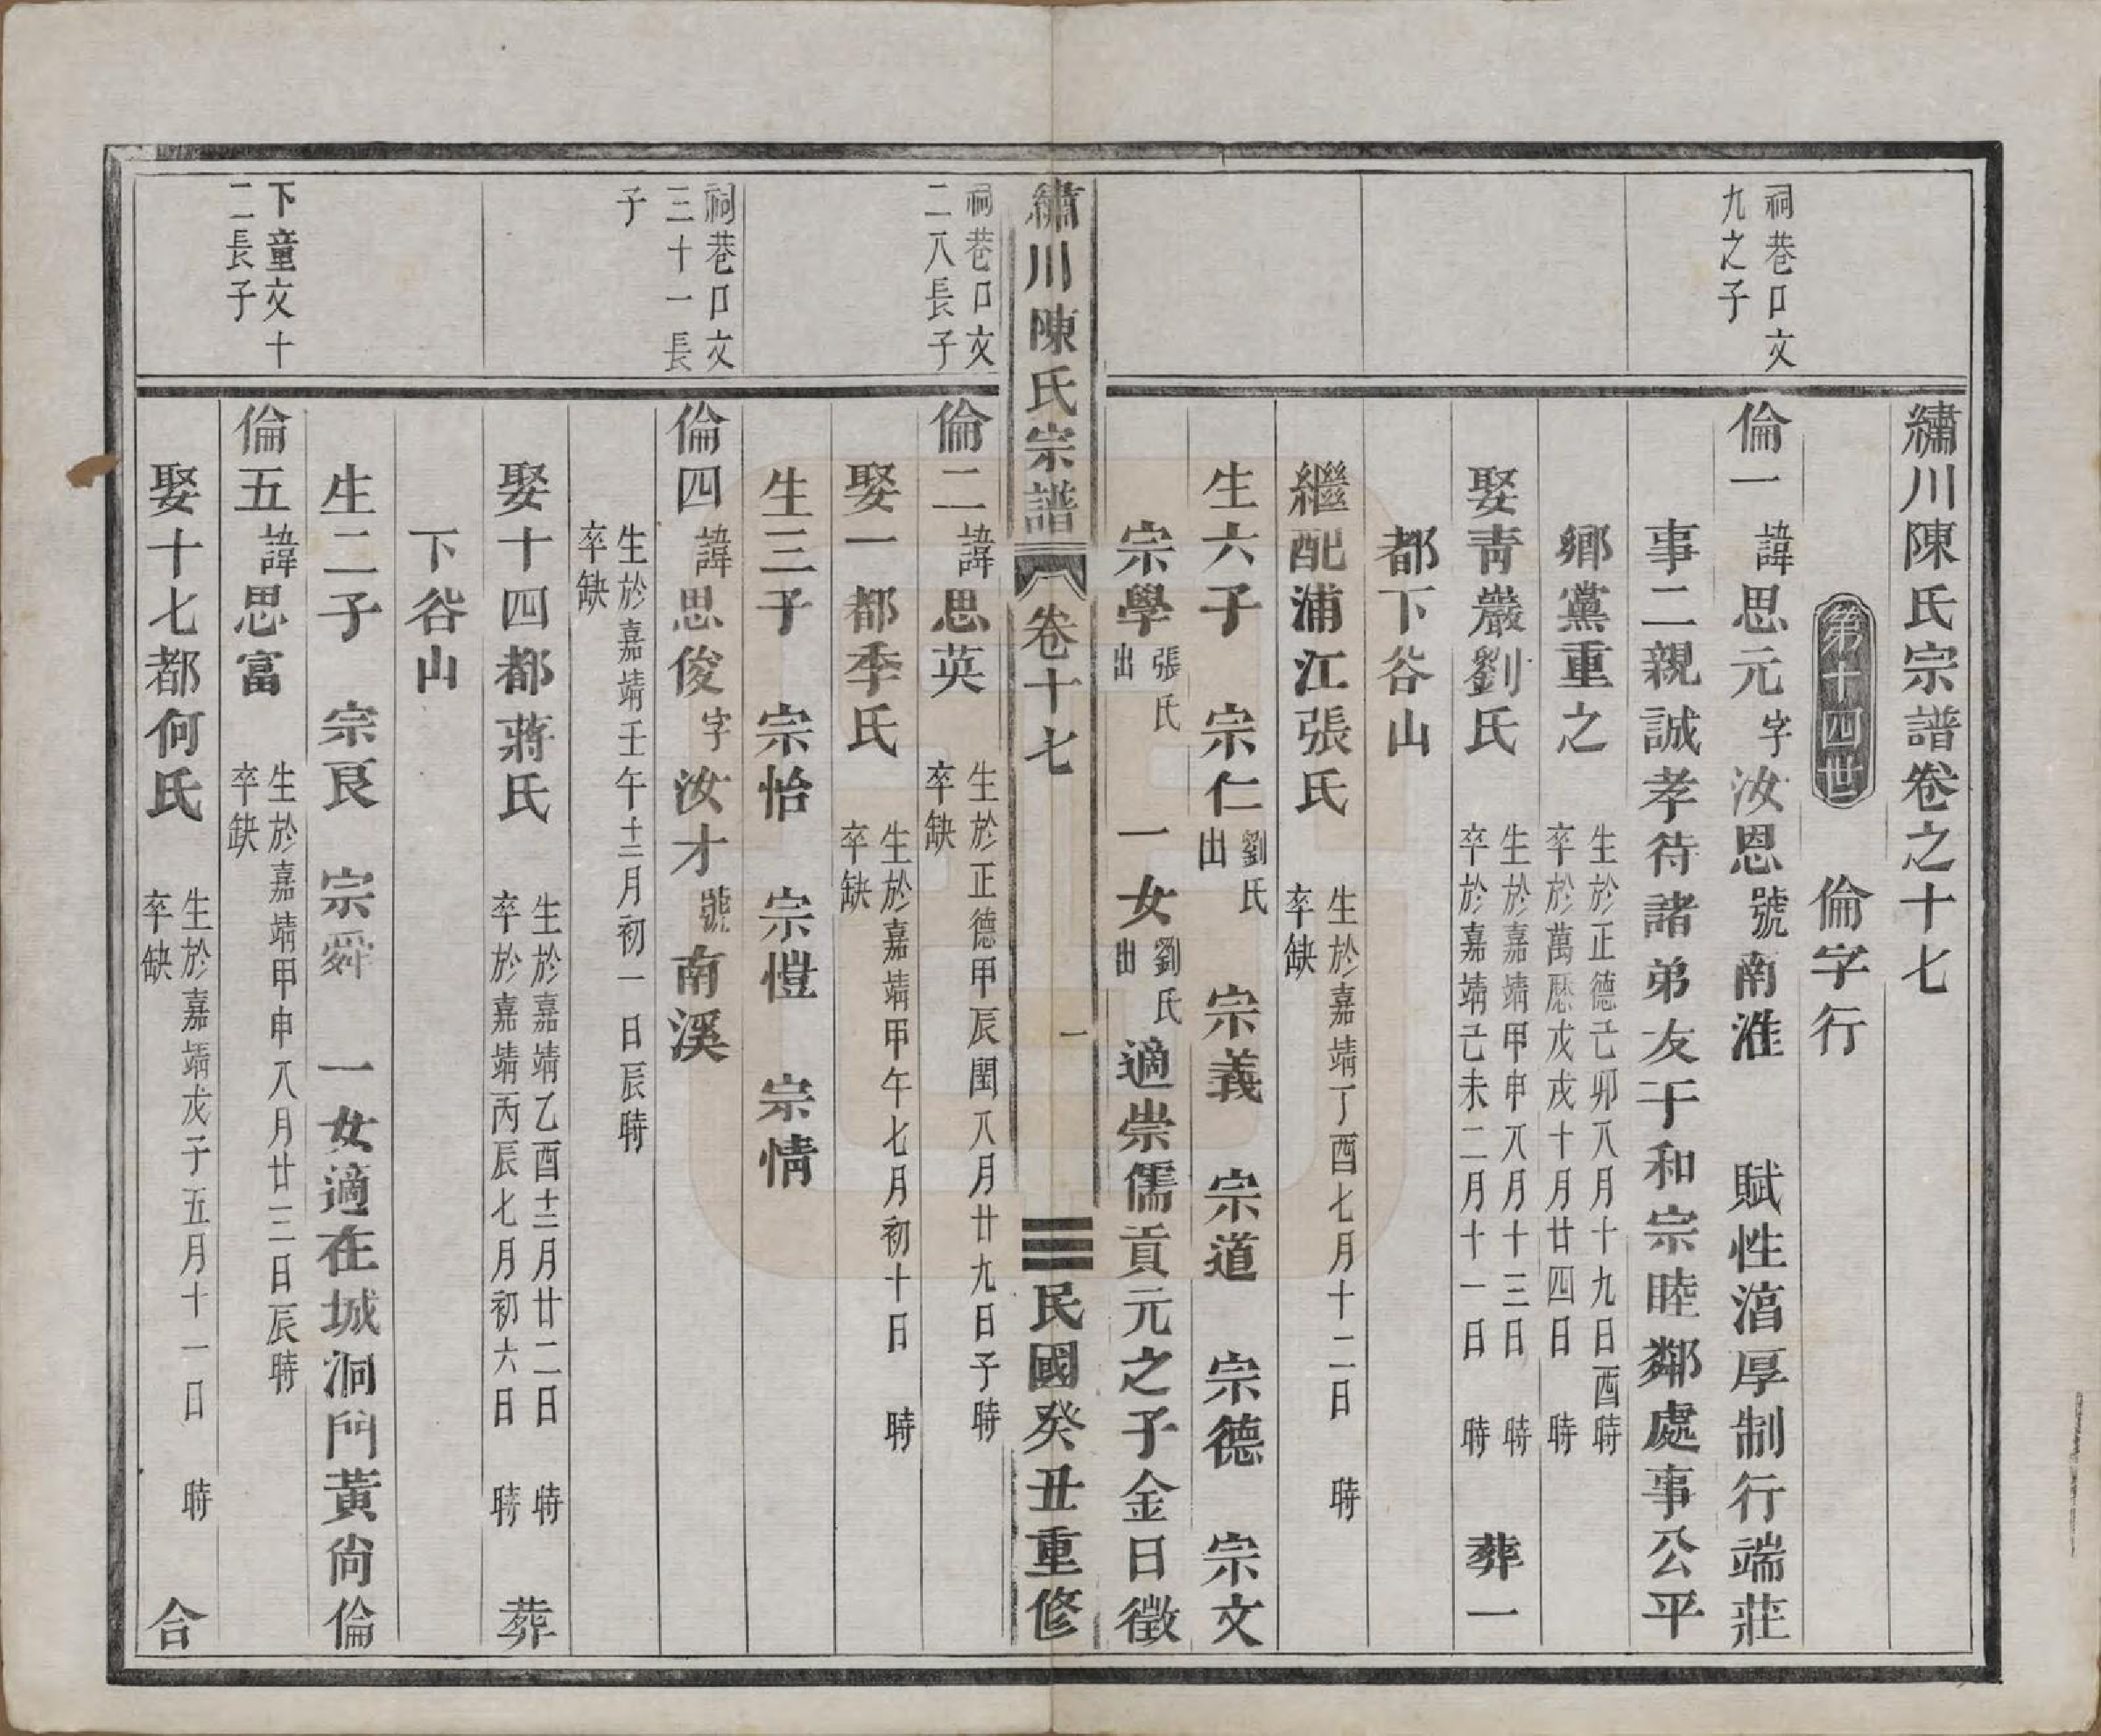 繡川陳氏宗譜卷之十七
第十四世 倫字行
祠巷口文
九之子
倫一 諱思元字汝恩號南淮 賦性湻厚制行端莊
事二親誠孝待諸弟友于和宗睦鄰處事公平
鄉黨重之 生於正德己卯八月十九日酉時
卒於萬歷戊戌十月廿四日 時
娶青巖劉氏 生於嘉靖甲申八月十三日 時
卒於嘉靖己未二月十一日 時 葬一
都下谷山
繼配浦江張氏 生於嘉靖丁酉七月十二日 時
卒缺
生六子 宗仁劉氏出 宗義 宗道 宗德 宗文
宗學張氏出 一女劉氏出適崇儒貢元之子金日徵
繡川陳氏宗譜 卷十七 一 民國癸丑重修
祠巷口文
二八長子
倫二 諱思英 生於正德甲辰閏八月廿九日子時
卒缺
娶一都季氏 生於嘉靖甲午七月初十日 時
卒缺
生三子 宗怡 宗愷 宗情
祠巷口文
三十一長
子
倫四 諱思俊字汝才號南溪
生於嘉靖壬午十二月初一日辰時
卒缺
娶十四都蔣氏 生於嘉靖乙酉十二月廿二日 時
卒於嘉靖丙辰七月初六日 時 葬
下谷山
生二子 宗良 宗舜 一女適在城洞門黃尙倫
下童文十
二長子
倫五 諱思富 生於嘉靖甲申八月廿三日辰時
卒缺
娶十七都何氏 生於嘉靖戊子五月十一日 時
卒缺 合